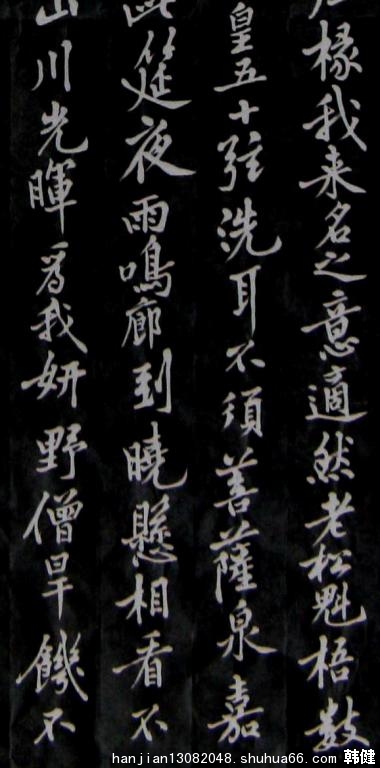 椽我来名之意適然老松魁梧數
皇五十弦洗耳不須菩薩泉嘉
此筵夜雨鳴廊到曉懸相看不
山川光暉爲我妍野僧旱饑不
hanjian13082048.shuhua66.com 韩健